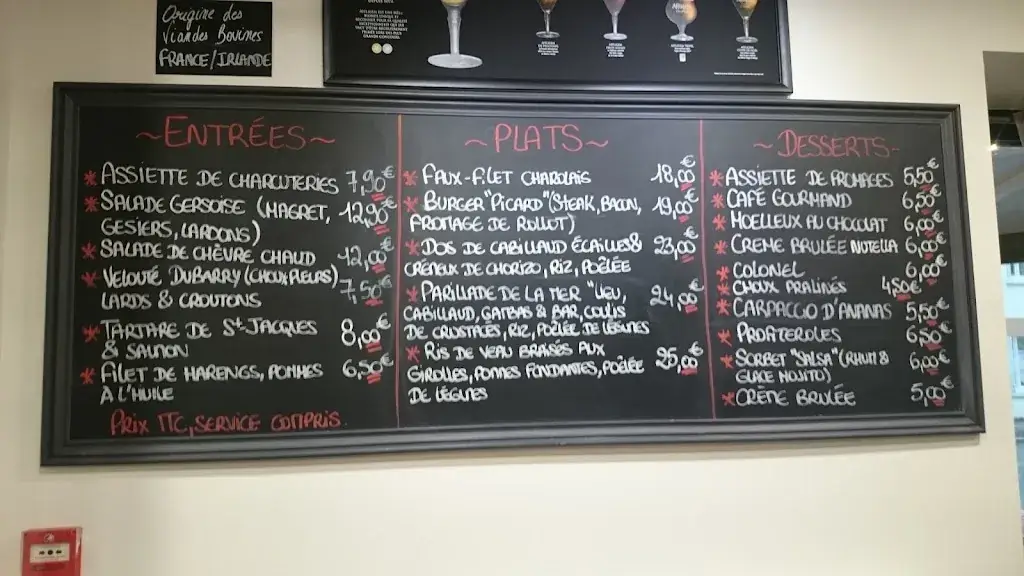 Origine des
Viandes Bovines
FRANCE/IRLANDE
~ENTRÉES~
*ASSIETTE DE CHARCUTERIES 7,90€
*SALADE GERSOISE (MAGRET, 12,90€
GESIERS, LARDONS)
*SALADE DE CHÈVRE CHAUD 12,00€
*VELOUTÉ DUBARRY (CHOUX FLEURS) 7,50€
LARDS & CROUTONS
*TARTARE DE St-JACQUES 8,00€
& SAUMON
*FILET DE HARENGS, POMMES 6,50€
À L'HUILE
PRIX TTC, SERVICE COMPRIS
~PLATS~
*FAUX-FILET CHAROLAIS 18,00€
*BURGER "PICARD" (STEAK, BACON, 19,00€
FROMAGE DE ROLLOT)
*DOS DE CABILLAUD ÉCAILLES & 23,00€
CRÉMEUX DE CHORIZO, RIZ, POÊLÉE
*PARILLADE DE LA MER "LIEU, 24,00€
CABILLAUD, GAMBAS & BAR, COULIS
DE CRUSTACÉS, RIZ, POÊLÉE DE LÉGUMES
*RIS DE VEAU BRAISÉS AUX 25,00€
GIROLLES, POMMES FONDANTES, POÊLÉE
DE LÉGUMES
~DESSERTS~
*ASSIETTE DE FROMAGES 5,50€
*CAFÉ GOURMAND 6,50€
*MOELLEUX AU CHOCOLAT 6,00€
*CREME BRULÉE NUTELLA 6,00€
*COLONEL 6,00€
*CHOUX PRALINÉS 4,50€
*CARPACCIO D'ANANAS 5,50€
*PROFITEROLES 6,50€
*SORBET "SALSA" (RHUM & 6,00€
GLACE MOJITO)
*CRÈME BRULÉE 5,00€